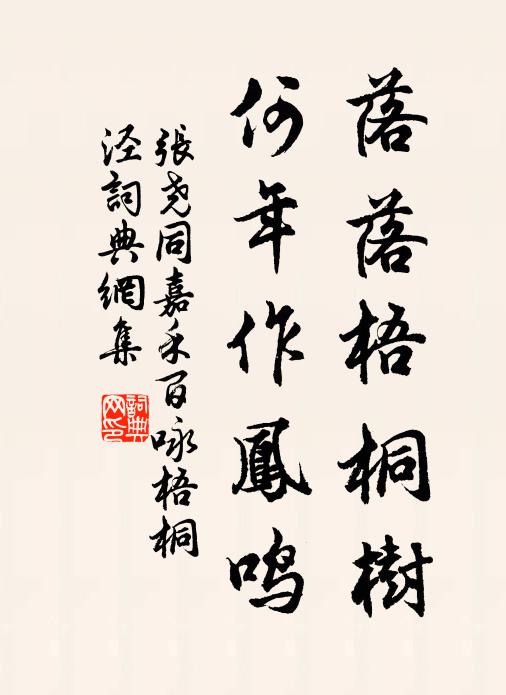 落落梧桐樹
何年作鳳鸣
張尧同嘉禾百咏梧桐
泾詞典網集
詞典
网印